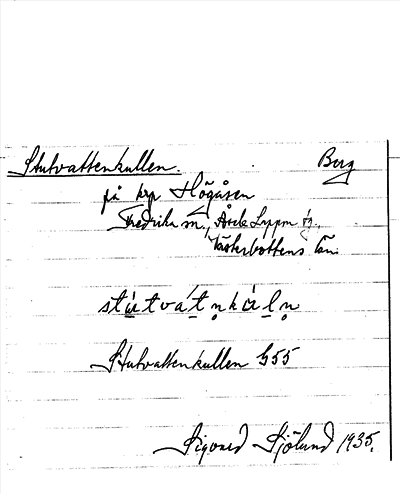 Stutvattenkullen. Berg
på krp Högåsen
Fredrika sn, Åsele Lappm tg.,
Västerbottens län.
stu̇tvátn̥ku̇l̥n̥
Stutvattenkullen G55
Sigvard Sjölund 1935.